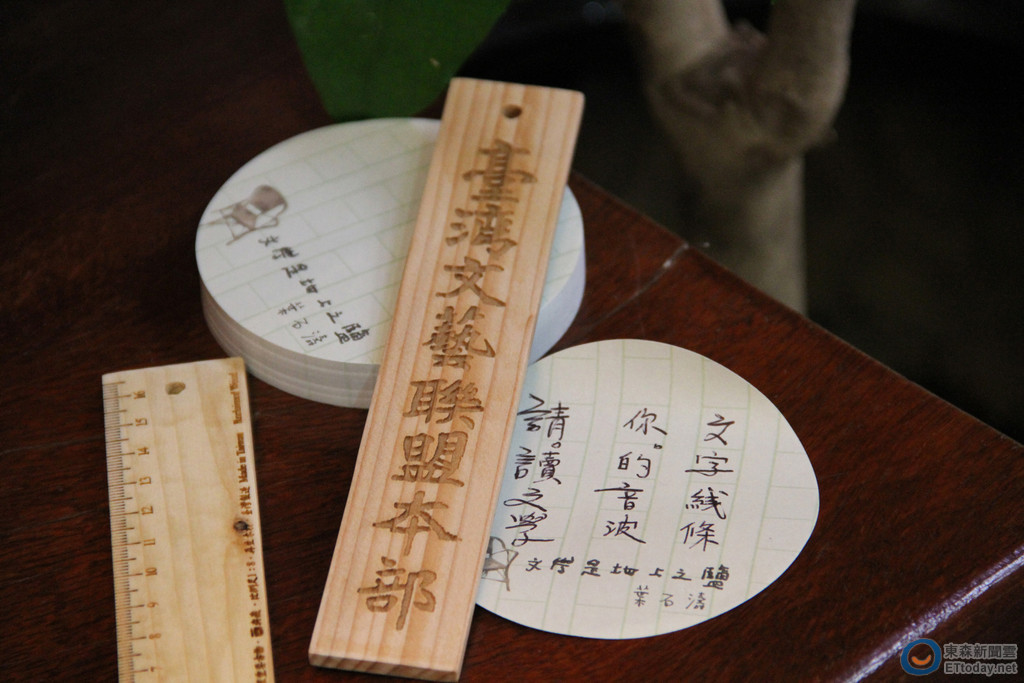 臺灣文藝聯盟本部
文學是地上之鹽
葉石濤
文字線條
你。的音波
請。讀文學
文學是地上之鹽
葉石濤
16
15
14
13
12
11
10
9
8
Made in Taiwan
東森新聞雲
ETtoday.net